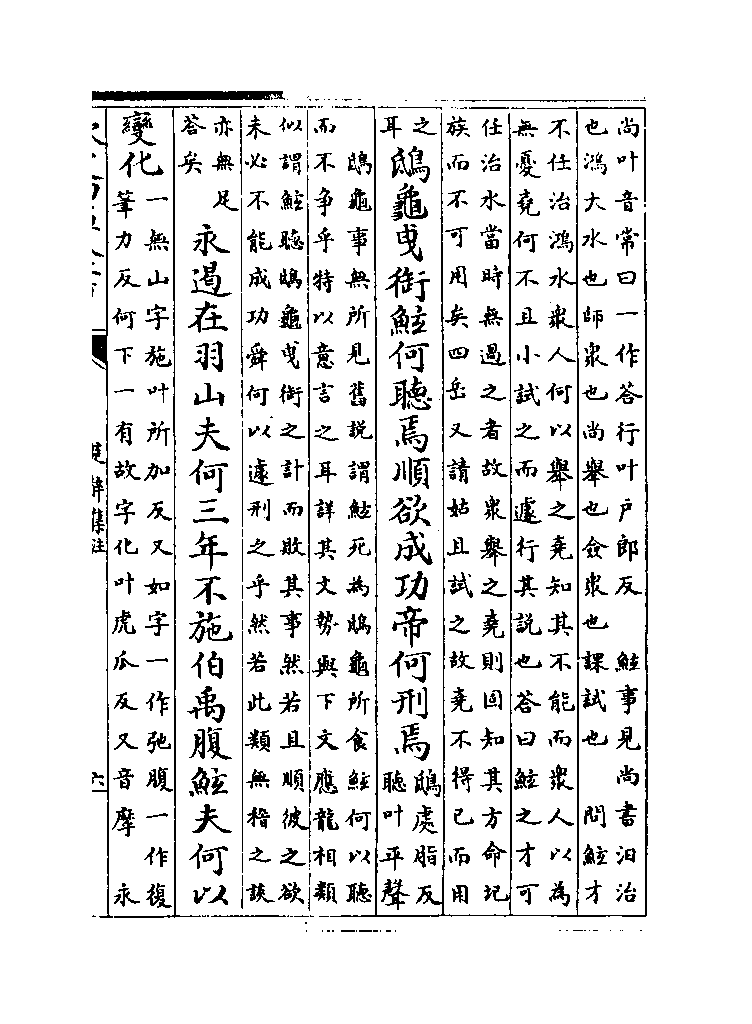 尚叶音常曰一作答行叶戸郎反　鮌事見尚書汩治
也鴻大水也師衆也尚舉也僉衆也課試也　問鮌才
不任治鴻水衆人何以舉之堯知其不能而衆人以為
無憂堯何不且小試之而遽行其說也答曰鮌之才可
任治水當時無過之者故衆舉之堯則固知其方命圮
族而不可用矣四岳又請姑且試之故堯不得已而用
之耳
鴟龜曳銜鮌何聽焉順欲成功帝何刑焉
鴟處脂反聽叶平聲
鴟龜事無所見舊説謂鮌死為鴟龜所食鮌何以聽
而不争乎特以意言之耳詳其文勢與下文應龍相類
似謂鮌聽鴟龜曳銜之計而敗其事然若且順彼之欲
未必不能成功舜何以遽刑之乎然若此類無稽之談
亦無足答矣
永遏在羽山夫何三年不施伯禹腹鮌夫何以
變化
一無山字施叶所加反又如字一作弛腹一作復
筆力反何下一有故字化叶虎瓜反又音摩　永
楚辭集注
六